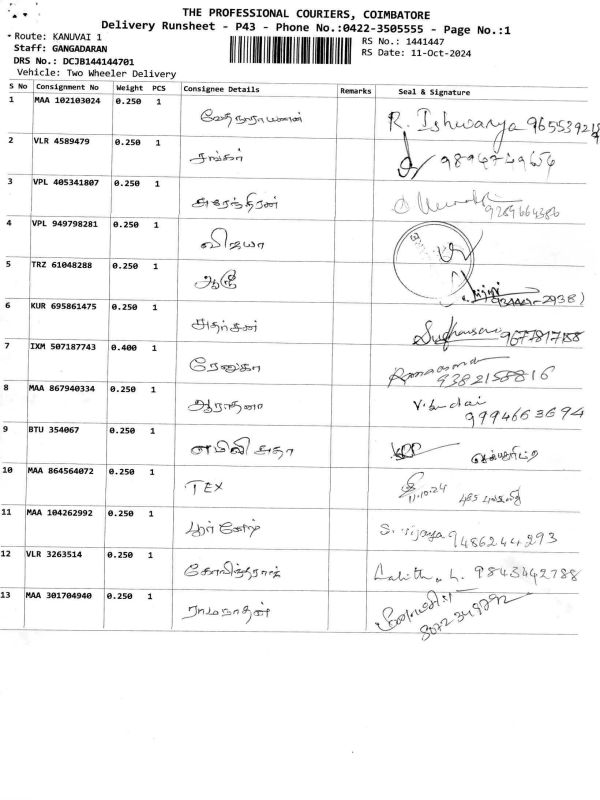 THE PROFESSIONAL COURIERS, COIMBATORE
Delivery Runsheet - P43 - Phone No.:0422-3505555 - Page No.:1
Route: KANUVAI 1
RS No.: 1441447
Staff: GANGADARAN
RS Date: 11-Oct-2024
DRS No.: DCJB144144701
Vehicle: Two Wheeler Delivery
S No Consignment No Weight PCS Consignee Details Remarks Seal & Signature
1 MAA 102103024 0.250 1 வேதநாராயணன் R. Ishwarya
2 VLR 4589479 0.250 1 சங்கர் 9894749656
3 VPL 405341807 0.250 1 சுரேந்திரன் 9289664386
4 VPL 949798281 0.250 1 விஜயா
5 TRZ 61048288 0.250 1
6 KUR 695861475 0.250 1
7 IXM 507187743 0.400 1 ரேணுகா 9382158816
8 MAA 867940334 0.250 1 ஆராதனா 9994663694
9 BTU 354067 0.250 1 எமிலி சுதா
10 MAA 864564072 0.250 1 TEX 11.10.24
11 MAA 104262992 0.250 1 S. Vijaya 9486244293
12 VLR 3263514 0.250 1 கோவிந்தராஜ் Lalitha. L. 9843442788
13 MAA 301704940 0.250 1 ராமநாதன்